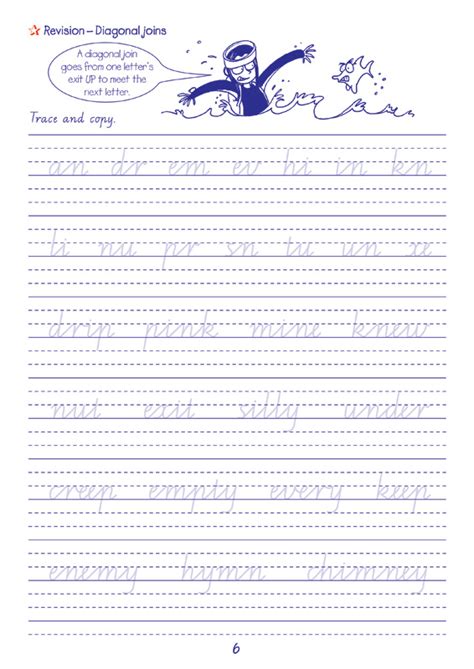 Revision – Diagonal joins
A diagonal join
goes from one letter's
exit UP to meet the
next letter.
Trace and copy.
an dr em ev hi in kn
li nu pr sn tu un xe
drip pink mine knew
nut exit silly under
creep empty every keep
enemy hymn chimney
6